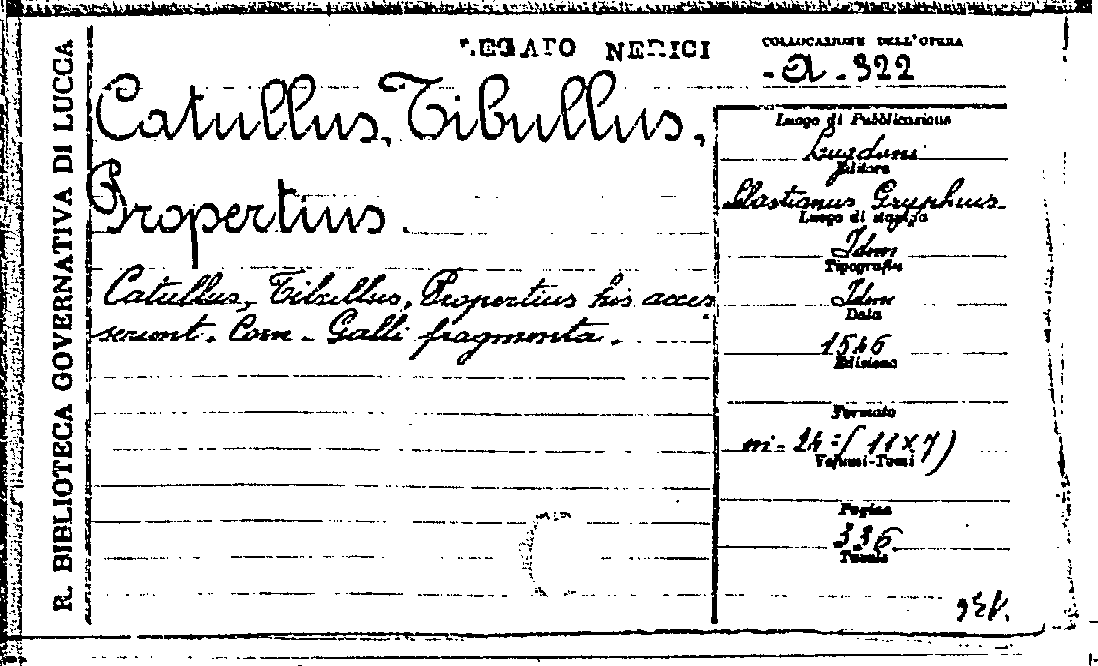 R. BIBLIOTECA GOVERNATIVA DI LUCCA
LEGATO NERICI
COLLOCAZIONE DELL'OPERA
- A - 322
Catullus, Tibullus,
Propertius.
Catullus, Tibullus, Propertius his acces
serunt. Corn - Galli fragmenta.
Luogo di Pubblicazione
Lugduni
Editore
Sebastianus Gryphius
Luogo di stampa
Idem
Tipografia
Idem
Data
1546
Edizione
Formato
in - 24 = (11 x 7)
Volumi-Tomi
Pagine
336
Tavole